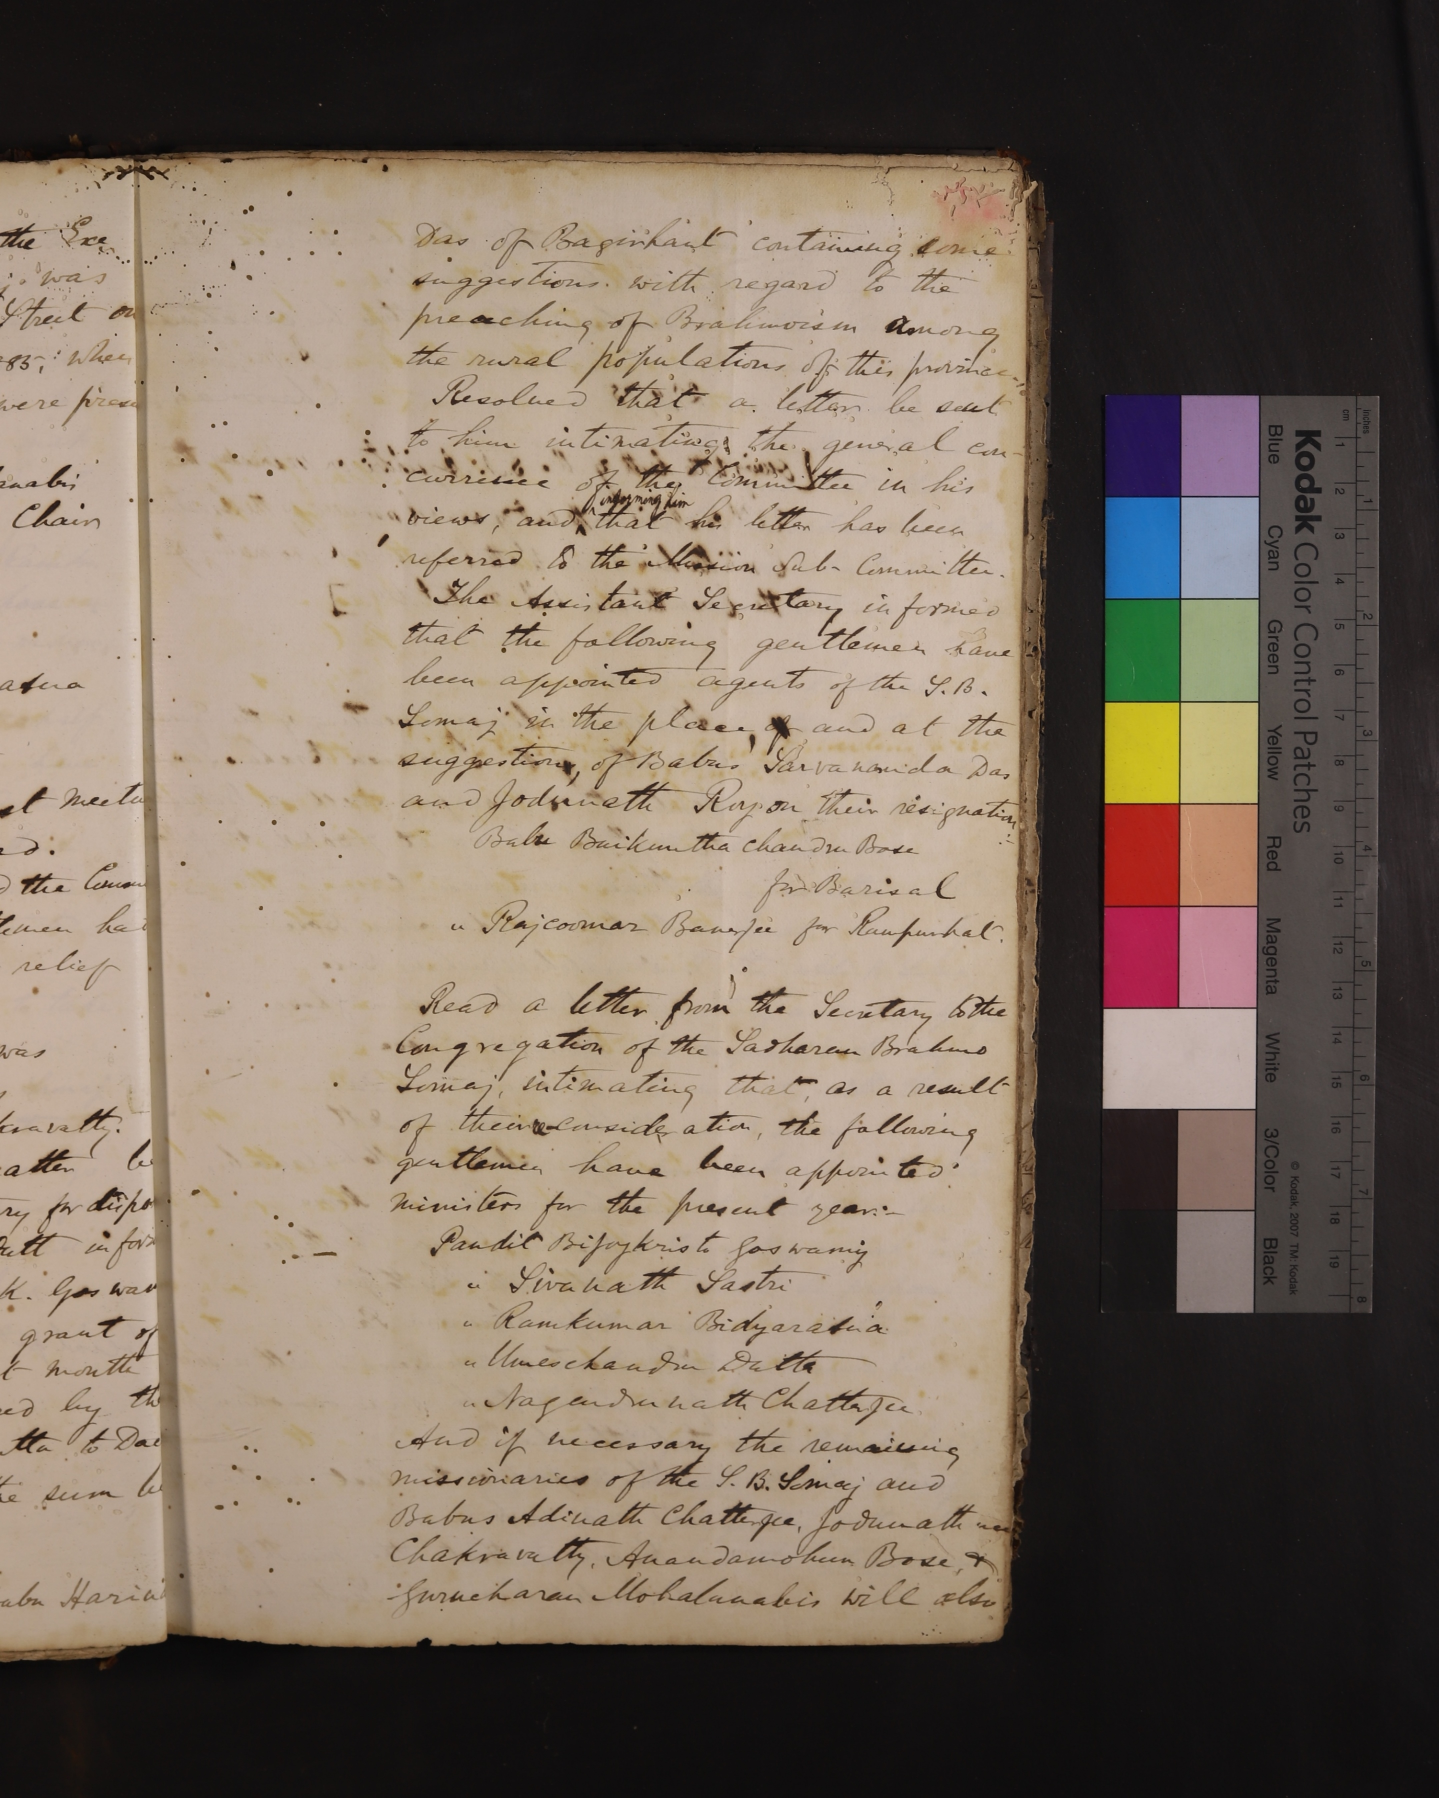 the Exe
was
Street on
85, when
were prese
anabis
Chair
st meetin
the Comm
tlemen had
relief
was
kravatty.
atter be
ry for dispo
Dutt infor
K. Goswam
grant of
t month
ed by the
tta to Dac
he sum be
abu Harin
Das of Bagirhaut containing some
suggestions with regard to the
preaching of Brahmoism among
the rural populations of this province.
Resolved that a letter be sent
to him intimating the general con-
currence of the Committee in his
informing him
views, and that his letter has been
referred to the Mission Sub-Committee.
The Assistant Secretary informed
that the following gentlemen have
been appointed agents of the S. B.
Somaj in the place, of and at the
suggestion, of Babus Sarvananda Das
and Jodunath Roy on their resignation:-
Babu Baikuntha Chandra Bose
for Barisal
" Rajcoomar Banerjee for Rampurhat.
Read a letter from the Secretary to the
Congregation of the Sadharan Brahmo
Somaj, intimating that, as a result
of their reconsideration, the following
gentlemen have been appointed
ministers for the present year:-
Pandit Bijoykristo Goswamy
" Sivanath Sastri
" Ramkumar Bidyaratna
" Umeschandra Datta
" Nagendranath Chatterjee
And if necessary the remaining
missionaries of the S. B. Somaj and
Babus Adinath Chatterjee, Jodunath
Chakravatty, Anandamohun Bose, &
Gurucharan Mohalanabis will also
Kodak Color Control Patches
Blue Cyan Green Yellow Red Magenta White 3/Color Black
© Kodak, 2007 TM: Kodak
cm 1 2 3 4 5 6 7 8 9 10 11 12 13 14 15 16 17 18 19
inches 1 2 3 4 5 6 7 8